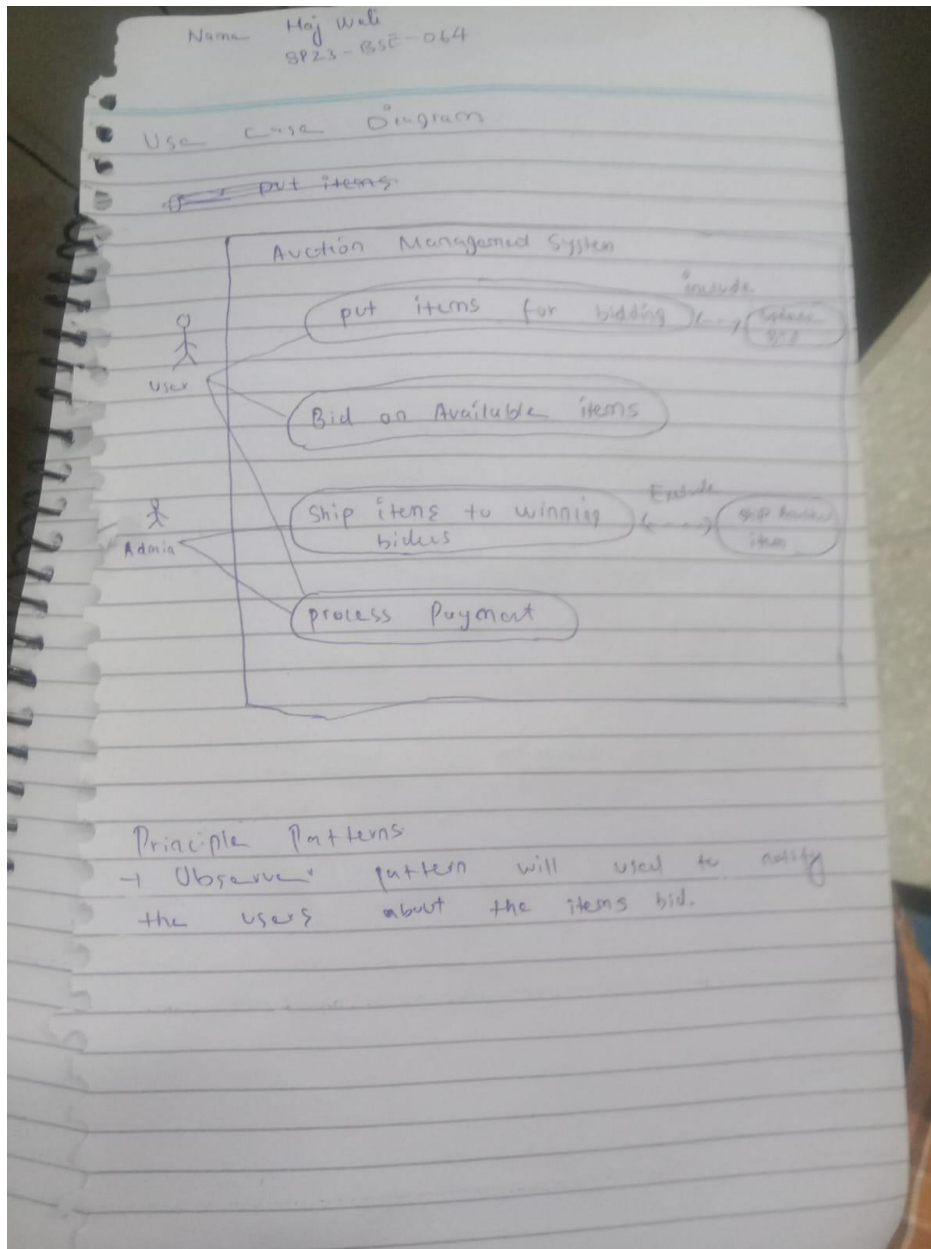 Name Haj Wali
SP23-BSE-064
Use Case Diagram
put items
Auction Managemed System
include
put items for bidding
Bid
User
Bid on Available items
Exclude
Ship items to winning
biders
ship Another
item
Admin
process Payment
Principle Patterns
→ Observer pattern will used to notify
the users about the items bid.